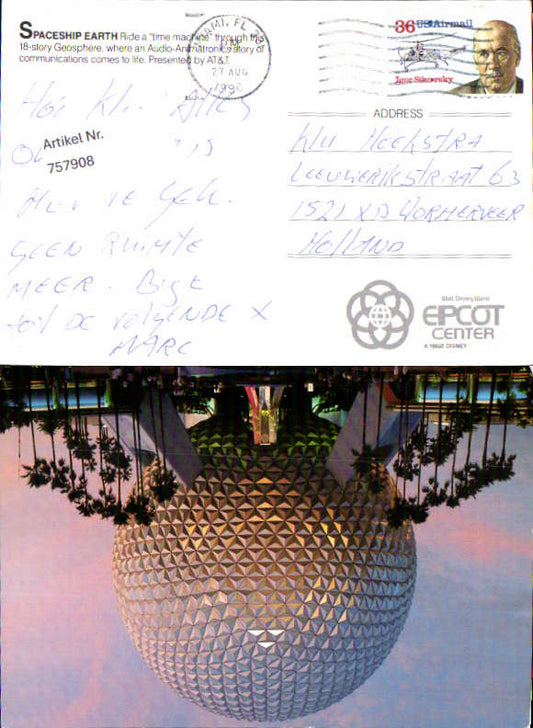 SPACESHIP EARTH Ride a "time machine" through the
18-story Geosphere, where an Audio-Animatronics story of
communications comes to life. Presented by AT&T.
MIAMI, FL
PM
27 AUG
1990
36 USAirmail
Igor Sikorsky
ADDRESS
Hoi
Artikel Nr.
757908
GEEN RUIMTE
MEER.
tot DE VOLGENDE X
MARC
HOEKSTRA
LEEUWERIKSTRAAT 63
1521 XD WORMERVEER
HOLLAND
Walt Disney World
EPCOT
CENTER
© 1982 DISNEY